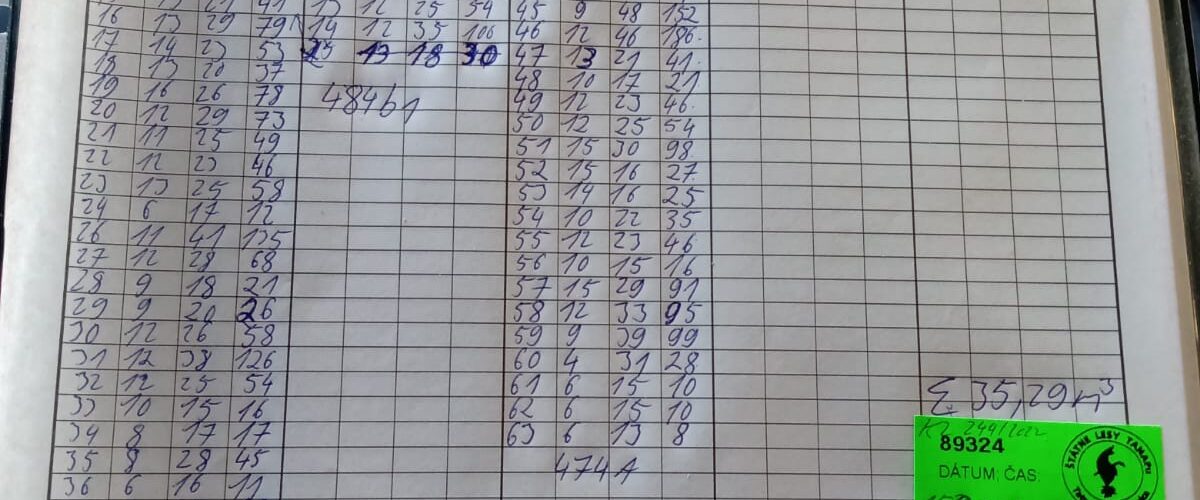 15 12 25 54 45 9 48 152
16 13 29 79 14 12 35 106 46 12 46 186
17 14 23 53 25 13 18 30 47 13 21 41
18 13 20 37 48 10 17 21
19 16 26 78 4846 1 49 12 23 46
20 12 29 73 50 12 25 54
21 11 25 49 51 15 30 98
22 12 23 46 52 15 16 27
23 13 25 58 53 14 16 25
24 6 17 12 54 10 22 35
26 11 41 135 55 12 23 46
27 12 28 68 56 10 15 16
28 9 18 21 57 15 29 91
29 9 20 26 58 12 33 95
30 12 26 58 59 9 39 99
31 12 38 126 60 4 31 28
32 12 25 54 61 6 15 10
33 10 15 16 62 6 15 10
34 8 17 17 63 6 13 8
35 8 28 45 474A
36 6 16 11
Σ 35,29 m³
249/2022
89324
DÁTUM, ČAS:
ŠTÁTNE LESY TANAPU